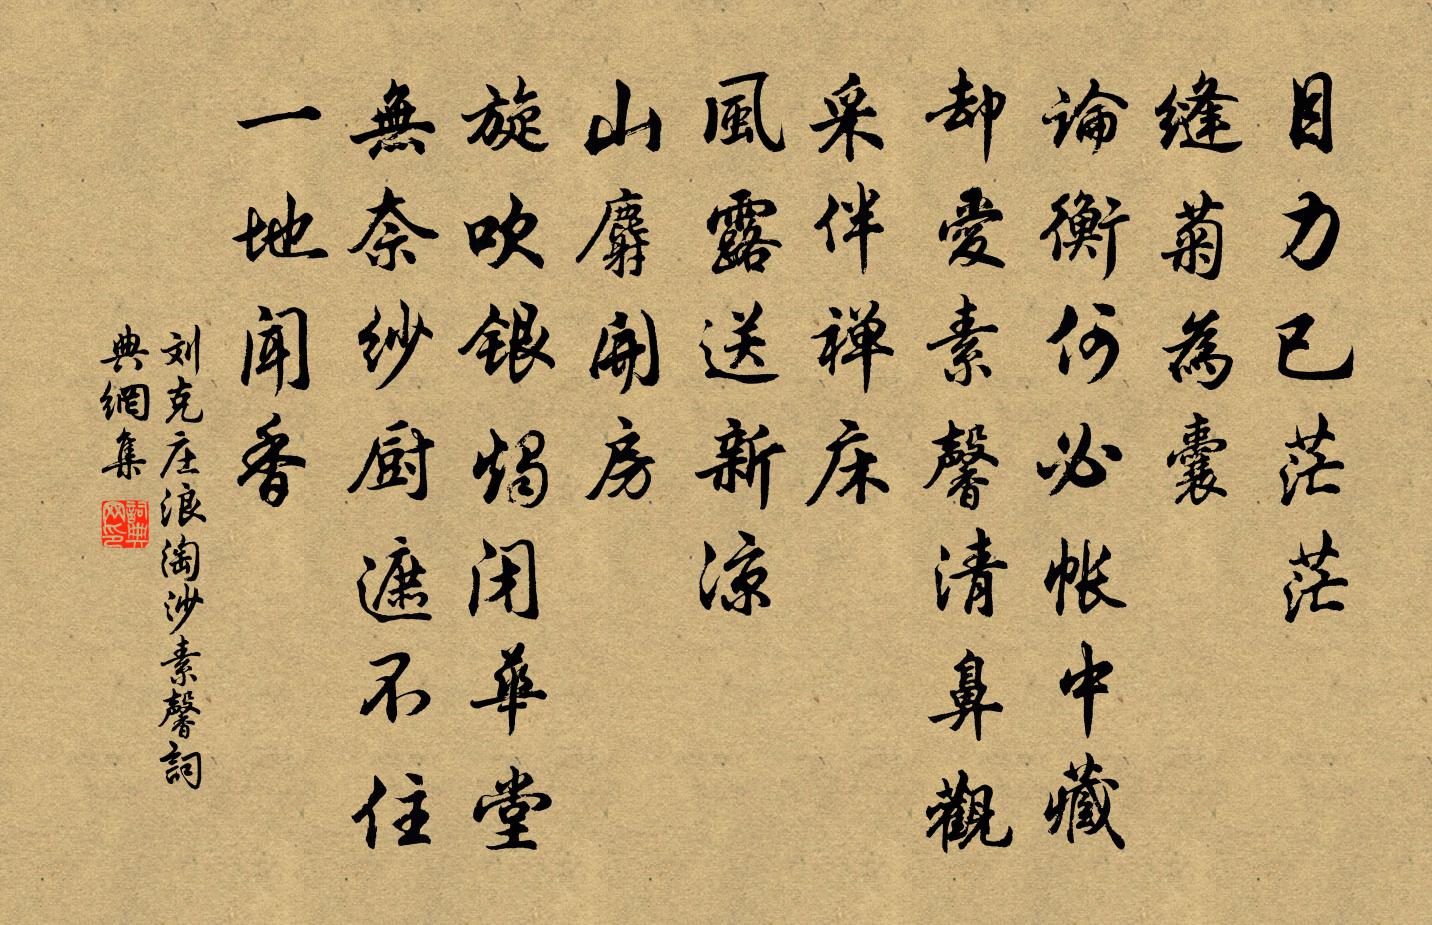 目力已茫茫
缝菊為囊
论衡何必帐中藏
却愛素馨清鼻觀
采伴禅床
風露送新凉
山麝開房
旋吹银烛闭華堂
無奈纱厨遮不住
一地闻香
刘克庄浪淘沙素馨詞
典網集
詞典网印